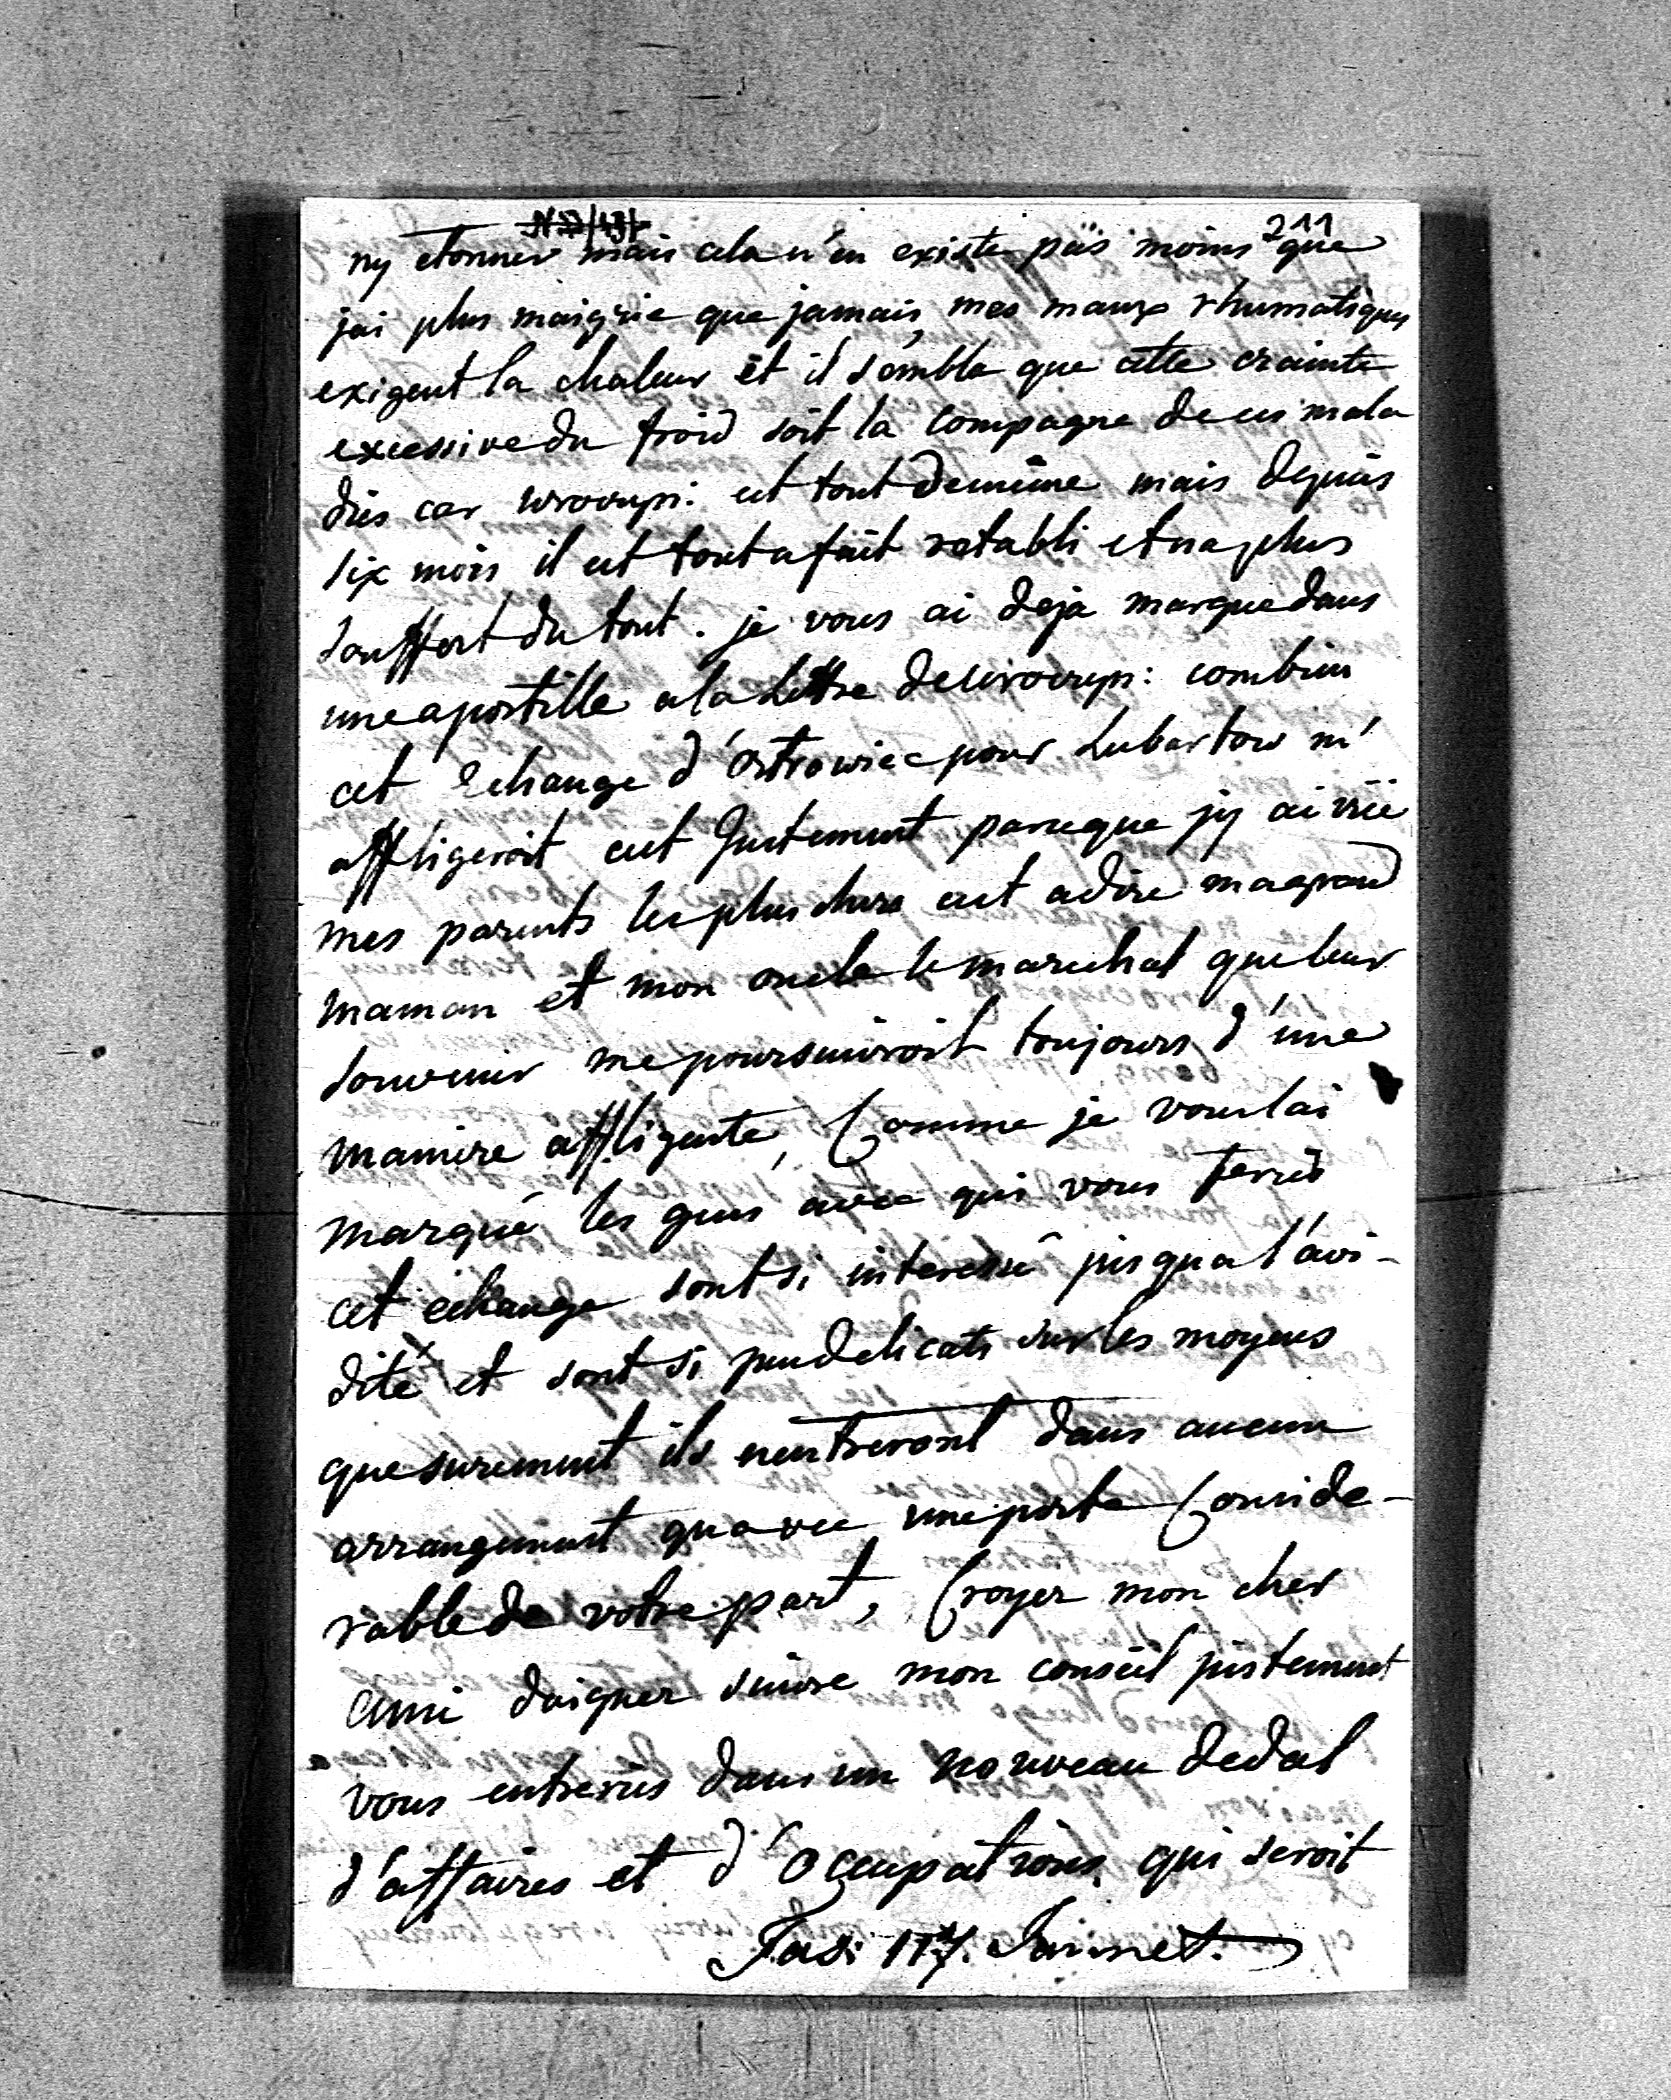 211
ny etonner mais cela n'en existe pas moins que
jai plus maigrie que jamais, mes maux rhumatiques
exigent la chaleur et il semble que cette crainte
excessive du froid soit la compagne de ces mala
dies car wrovnpi: est tout de meme mais depuis
six mois il est tout a fait retabli et na plus
souffert du tout. je vous ai deja marque dans
une apostille a la Lettre de wrovnpi: combien
cet Echange d'Ostrowiec pour Lubartow m'
affligeroit cest Justement parceque jy ai vue
mes parents les plus chers cest a dire magrand
maman et mon oncle le marechal que leur
souvenir me poursuivroit toujours d'une
maniere affligente, Comme je vous lai
marqué les gens avec qui vous feriés
cet échange sont si interessé jusqua l'avi-
dité et sont si peu delicats sur les moyens
que surement ils nentreront dans aucun
arrangement quavec une perte Conside-
rable de votre part, Croyez mon cher
ami daignez suivre mon conseil justement
vous entreriés dans un nouveau dedal
d'affaires et d'Occupations qui seroit